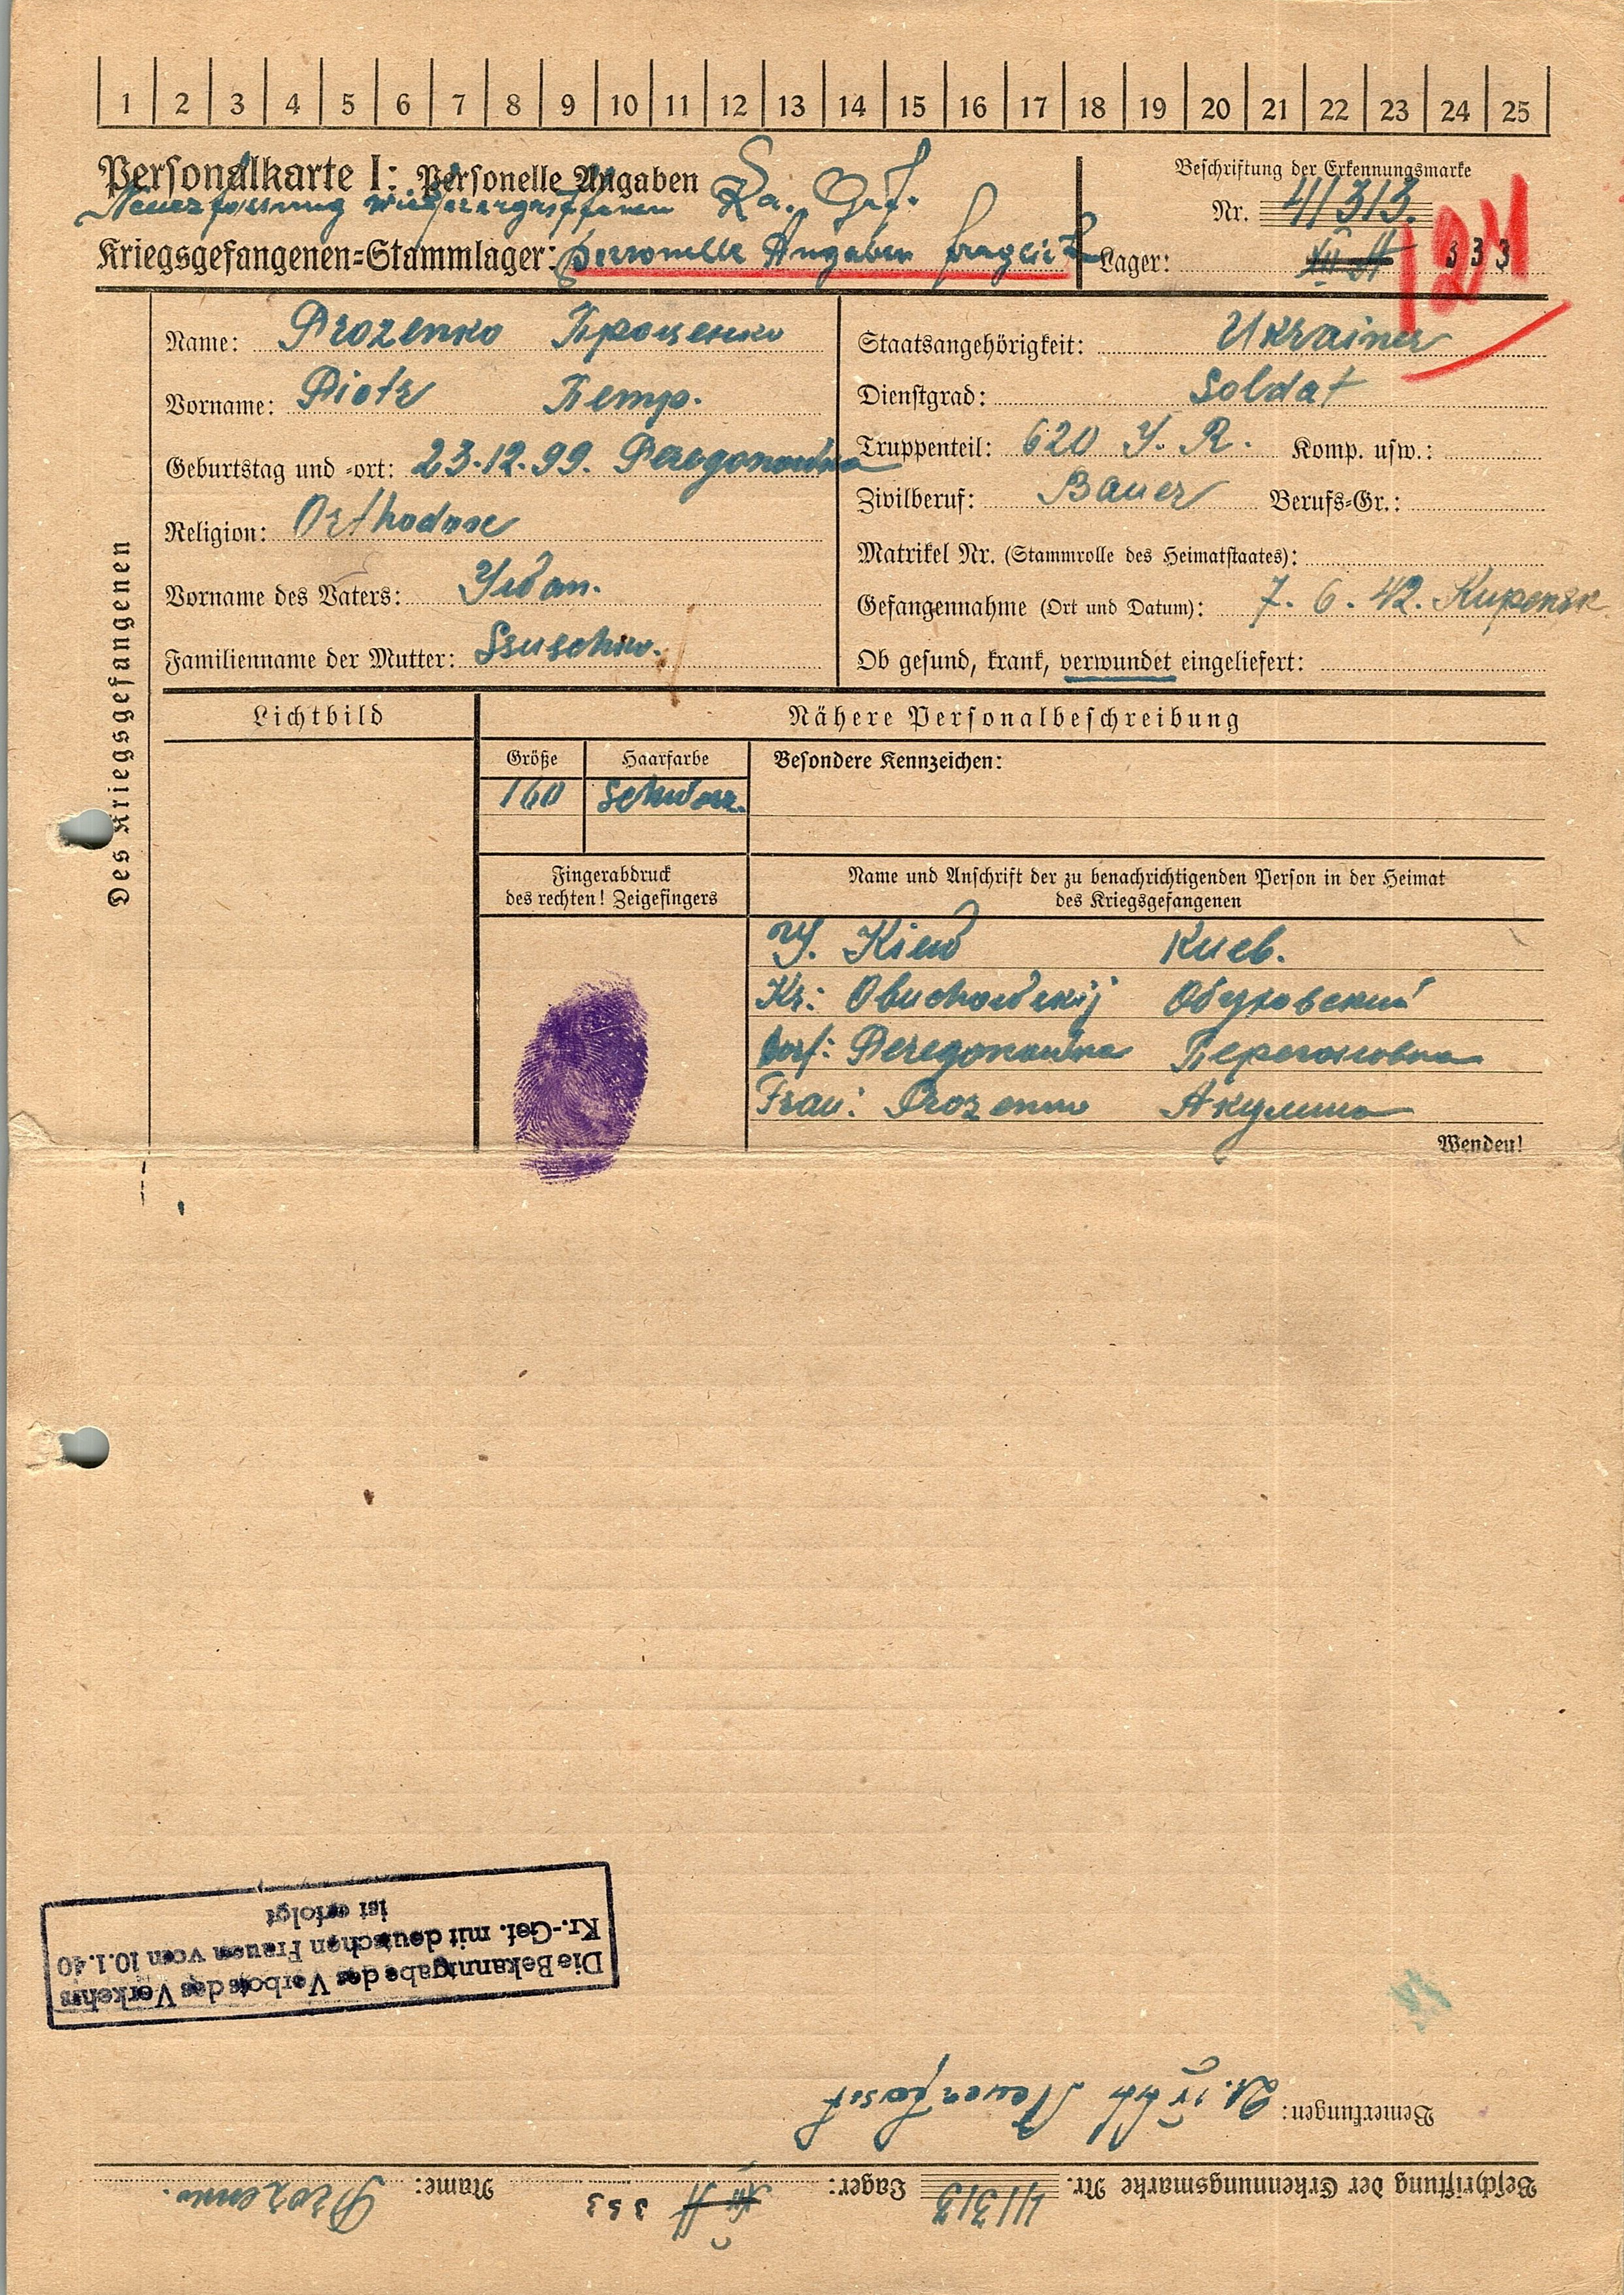 1 2 3 4 5 6 7 8 9 10 11 12 13 14 15 16 17 18 19 20 21 22 23 24 25
Personalkarte I: Personelle Angaben
Beschriftung der Erkennungsmarke
Neuerfassung wiederergriffenen Kr. Gef.
Nr. 41313.
Kriegsgefangenen-Stammlager: personelle Angaben fraglich
Lager: XII A 333
124
Des Kriegsgefangenen
Name: Prozenko Проценко
Vorname: Piotr Петр.
Geburtstag und -ort: 23.12.99. Peregonowka
Religion: Orthodox
Vorname des Vaters: Iwan.
Familienname der Mutter:
Staatsangehörigkeit: Ukrainer
Dienstgrad: Soldat
Truppenteil: 620 I. R. Komp. usw.:
Zivilberuf: Bauer Berufs-Gr.:
Matrikel Nr. (Stammrolle des Heimatstaates):
Gefangennahme (Ort und Datum): 7. 6. 42. Kupensk
Ob gesund, krank, verwundet eingeliefert:
Lichtbild
Nähere Personalbeschreibung
Größe Haarfarbe Besondere Kennzeichen:
160 schwarz.
Fingerabdruck
des rechten! Zeigefingers
Name und Anschrift der zu benachrichtigenden Person in der Heimat
des Kriegsgefangenen
Kiew Киев.
Kr: Obuchowskij Обуховский
Dorf: Peregonowka Перегоновка
Frau: Prozenko Акулина
Wenden!
Die Bekanntgabe des Verbotes des Verkehrs
Kr.-Gef. mit deutschen Frauen vom 10.1.40
ist erfolgt
Bemerkungen: Neuerfasst
Beschriftung der Erkennungsmarke Nr. 41313 Lager: XII A 333 Name: Prozenko.